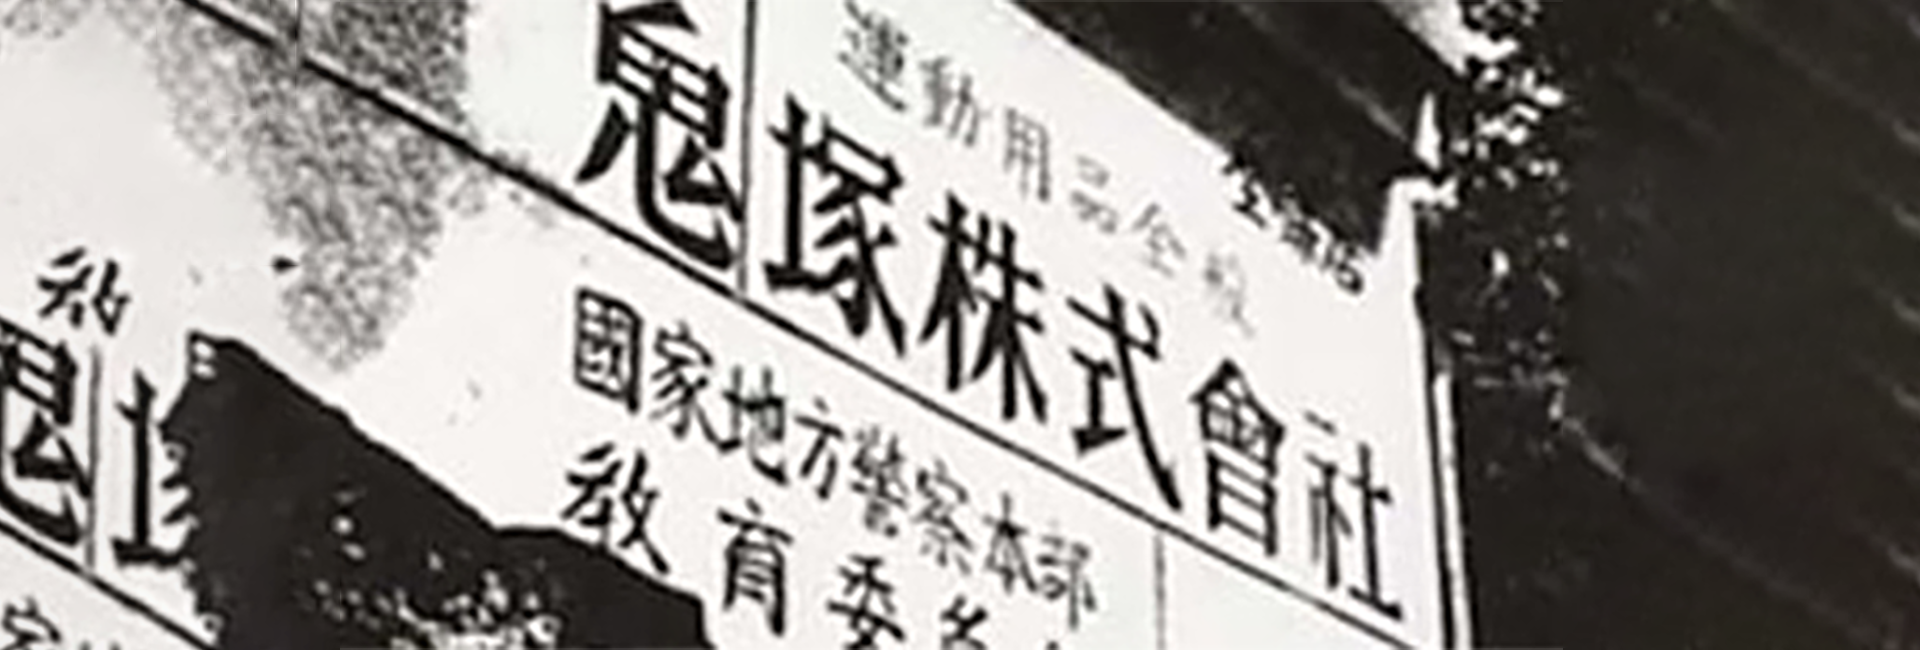 運動用品全般
鬼塚株式會社
國家地方警察本部
教育委員